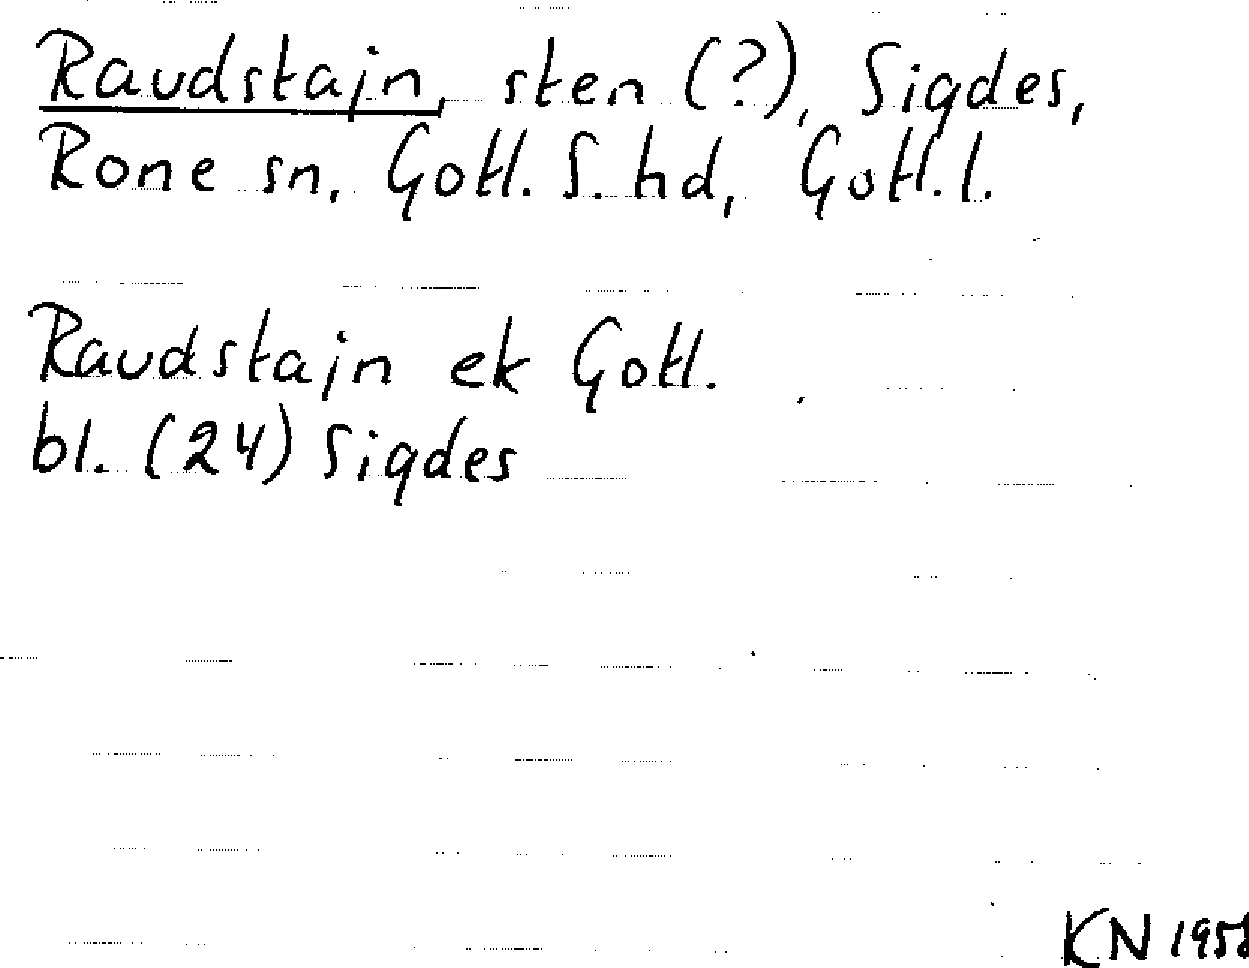 Raudstajn, sten (?), Sigdes,
Rone sn, Gotl. S. hd, Gotl. l.
Raudstajn ek Gotl.
bl. (24) Sigdes
KN